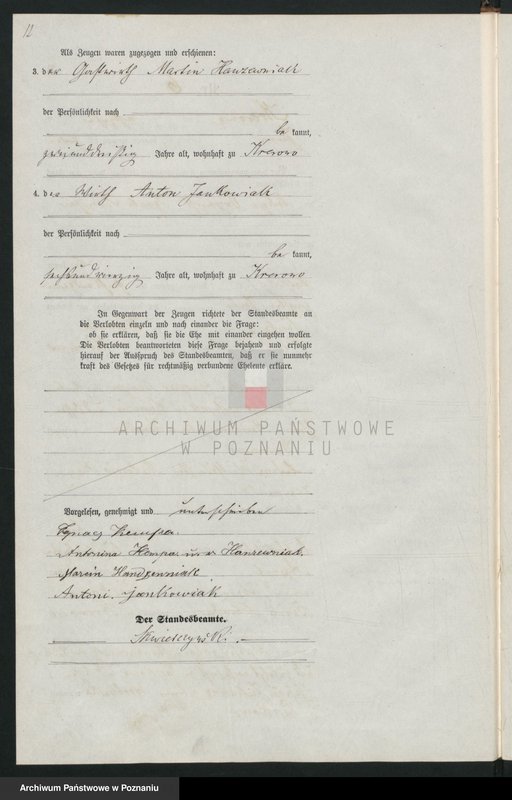 12
Als Zeugen waren zugezogen und erschienen:
3. der Gastwirth Martin Hanzewniak
der Persönlichkeit nach
be kannt,
zweiunddreißig Jahre alt, wohnhaft zu Krerowo
4. der Wirth Anton Jankowiak
der Persönlichkeit nach
be kannt,
sechsundvierzig Jahre alt, wohnhaft zu Krerowo
In Gegenwart der Zeugen richtete der Standesbeamte an
die Verlobten einzeln und nach einander die Frage:
ob sie erklären, daß sie die Ehe mit einander eingehen wollen.
Die Verlobten beantworteten diese Frage bejahend und erfolgte
hierauf der Ausspruch des Standesbeamten, daß er sie nunmehr
kraft des Gesetzes für rechtmäßig verbundene Eheleute erkläre.
ARCHIWUM PAŃSTWOWE
W POZNANIU
Vorgelesen, genehmigt und unterschrieben
Ignacy Kempa.
Antonina Kempa Hanzewniak
Marcin
Antoni Jankowiak
Der Standesbeamte.
Archiwum Państwowe w Poznaniu